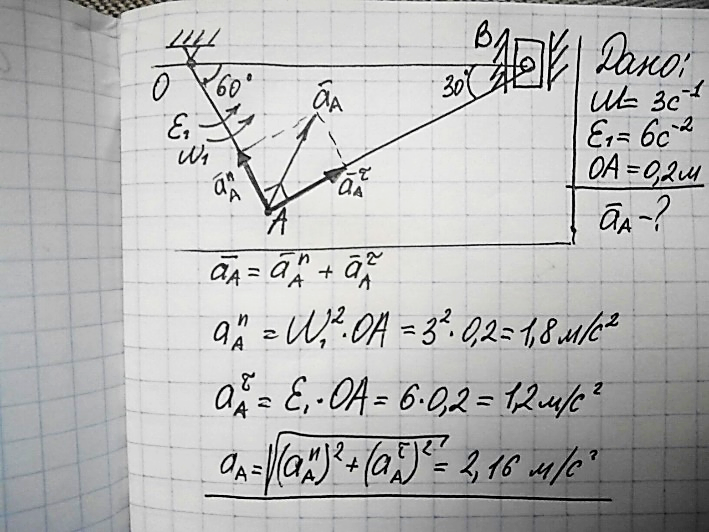 O
60°
B
30°
ε₁
ω₁
ā_A
ā_Aⁿ
ā_A^τ
A
Дано:
ω = 3с⁻¹
ε₁ = 6с⁻²
OA = 0,2м
ā_A - ?
ā_A = ā_Aⁿ + ā_A^τ
a_Aⁿ = ω₁² · OA = 3² · 0,2 = 1,8 м/с²
a_A^τ = ε₁ · OA = 6 · 0,2 = 1,2 м/с²
a_A = √(a_Aⁿ)² + (a_A^τ)² = 2,16 м/с²